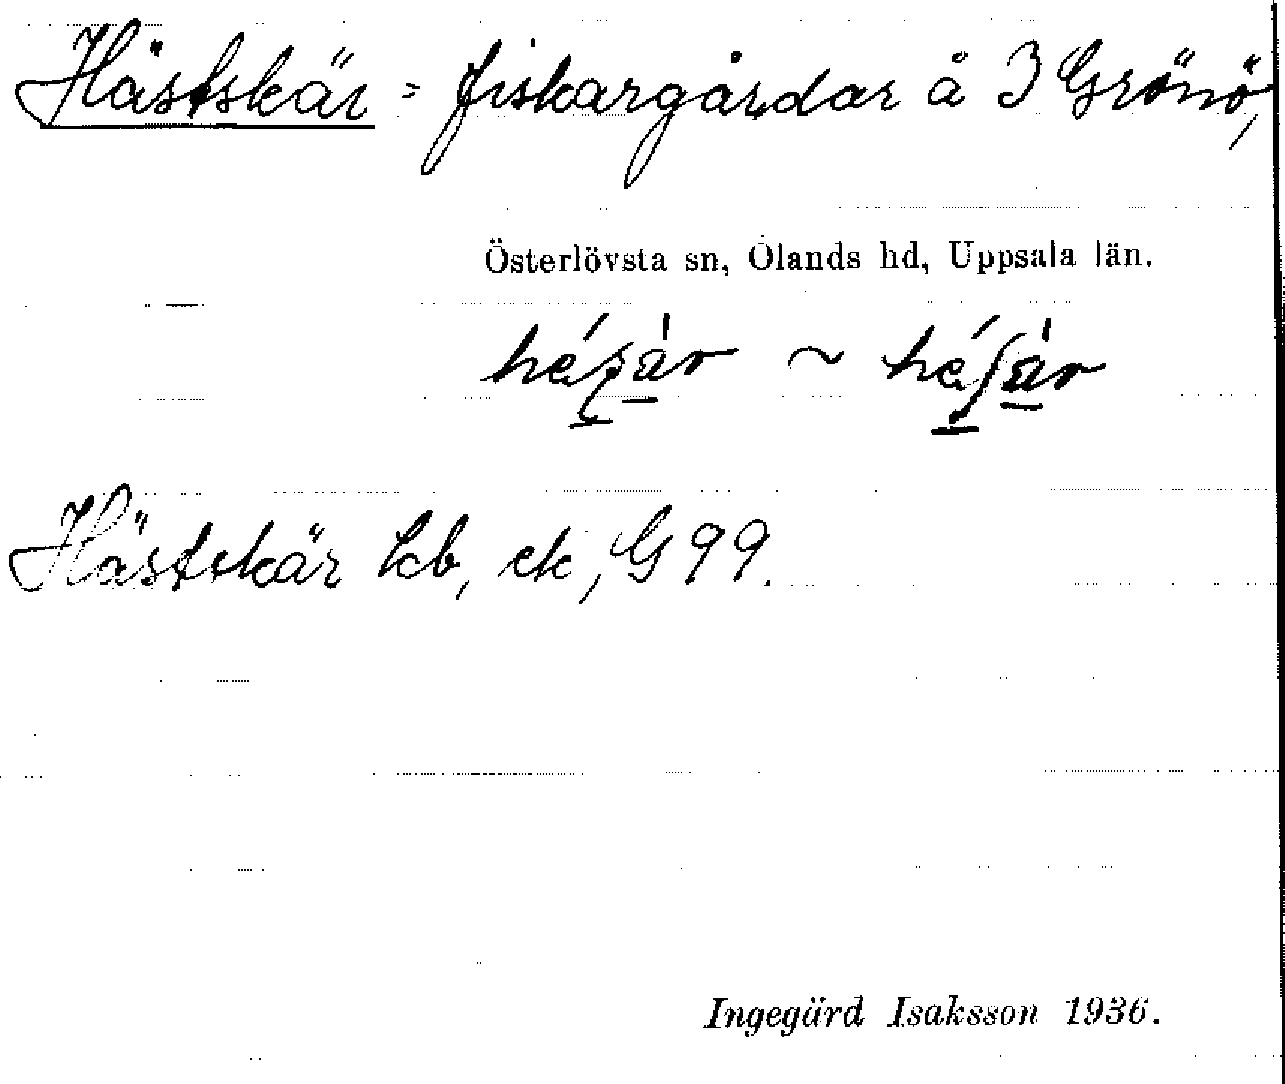 Hästskär = fiskargårdar å 3 Grönö,
Österlövsta sn, Olands hd, Uppsala län.
~
Hästskär kb, ek, G 99.
Ingegärd Isaksson 1936.